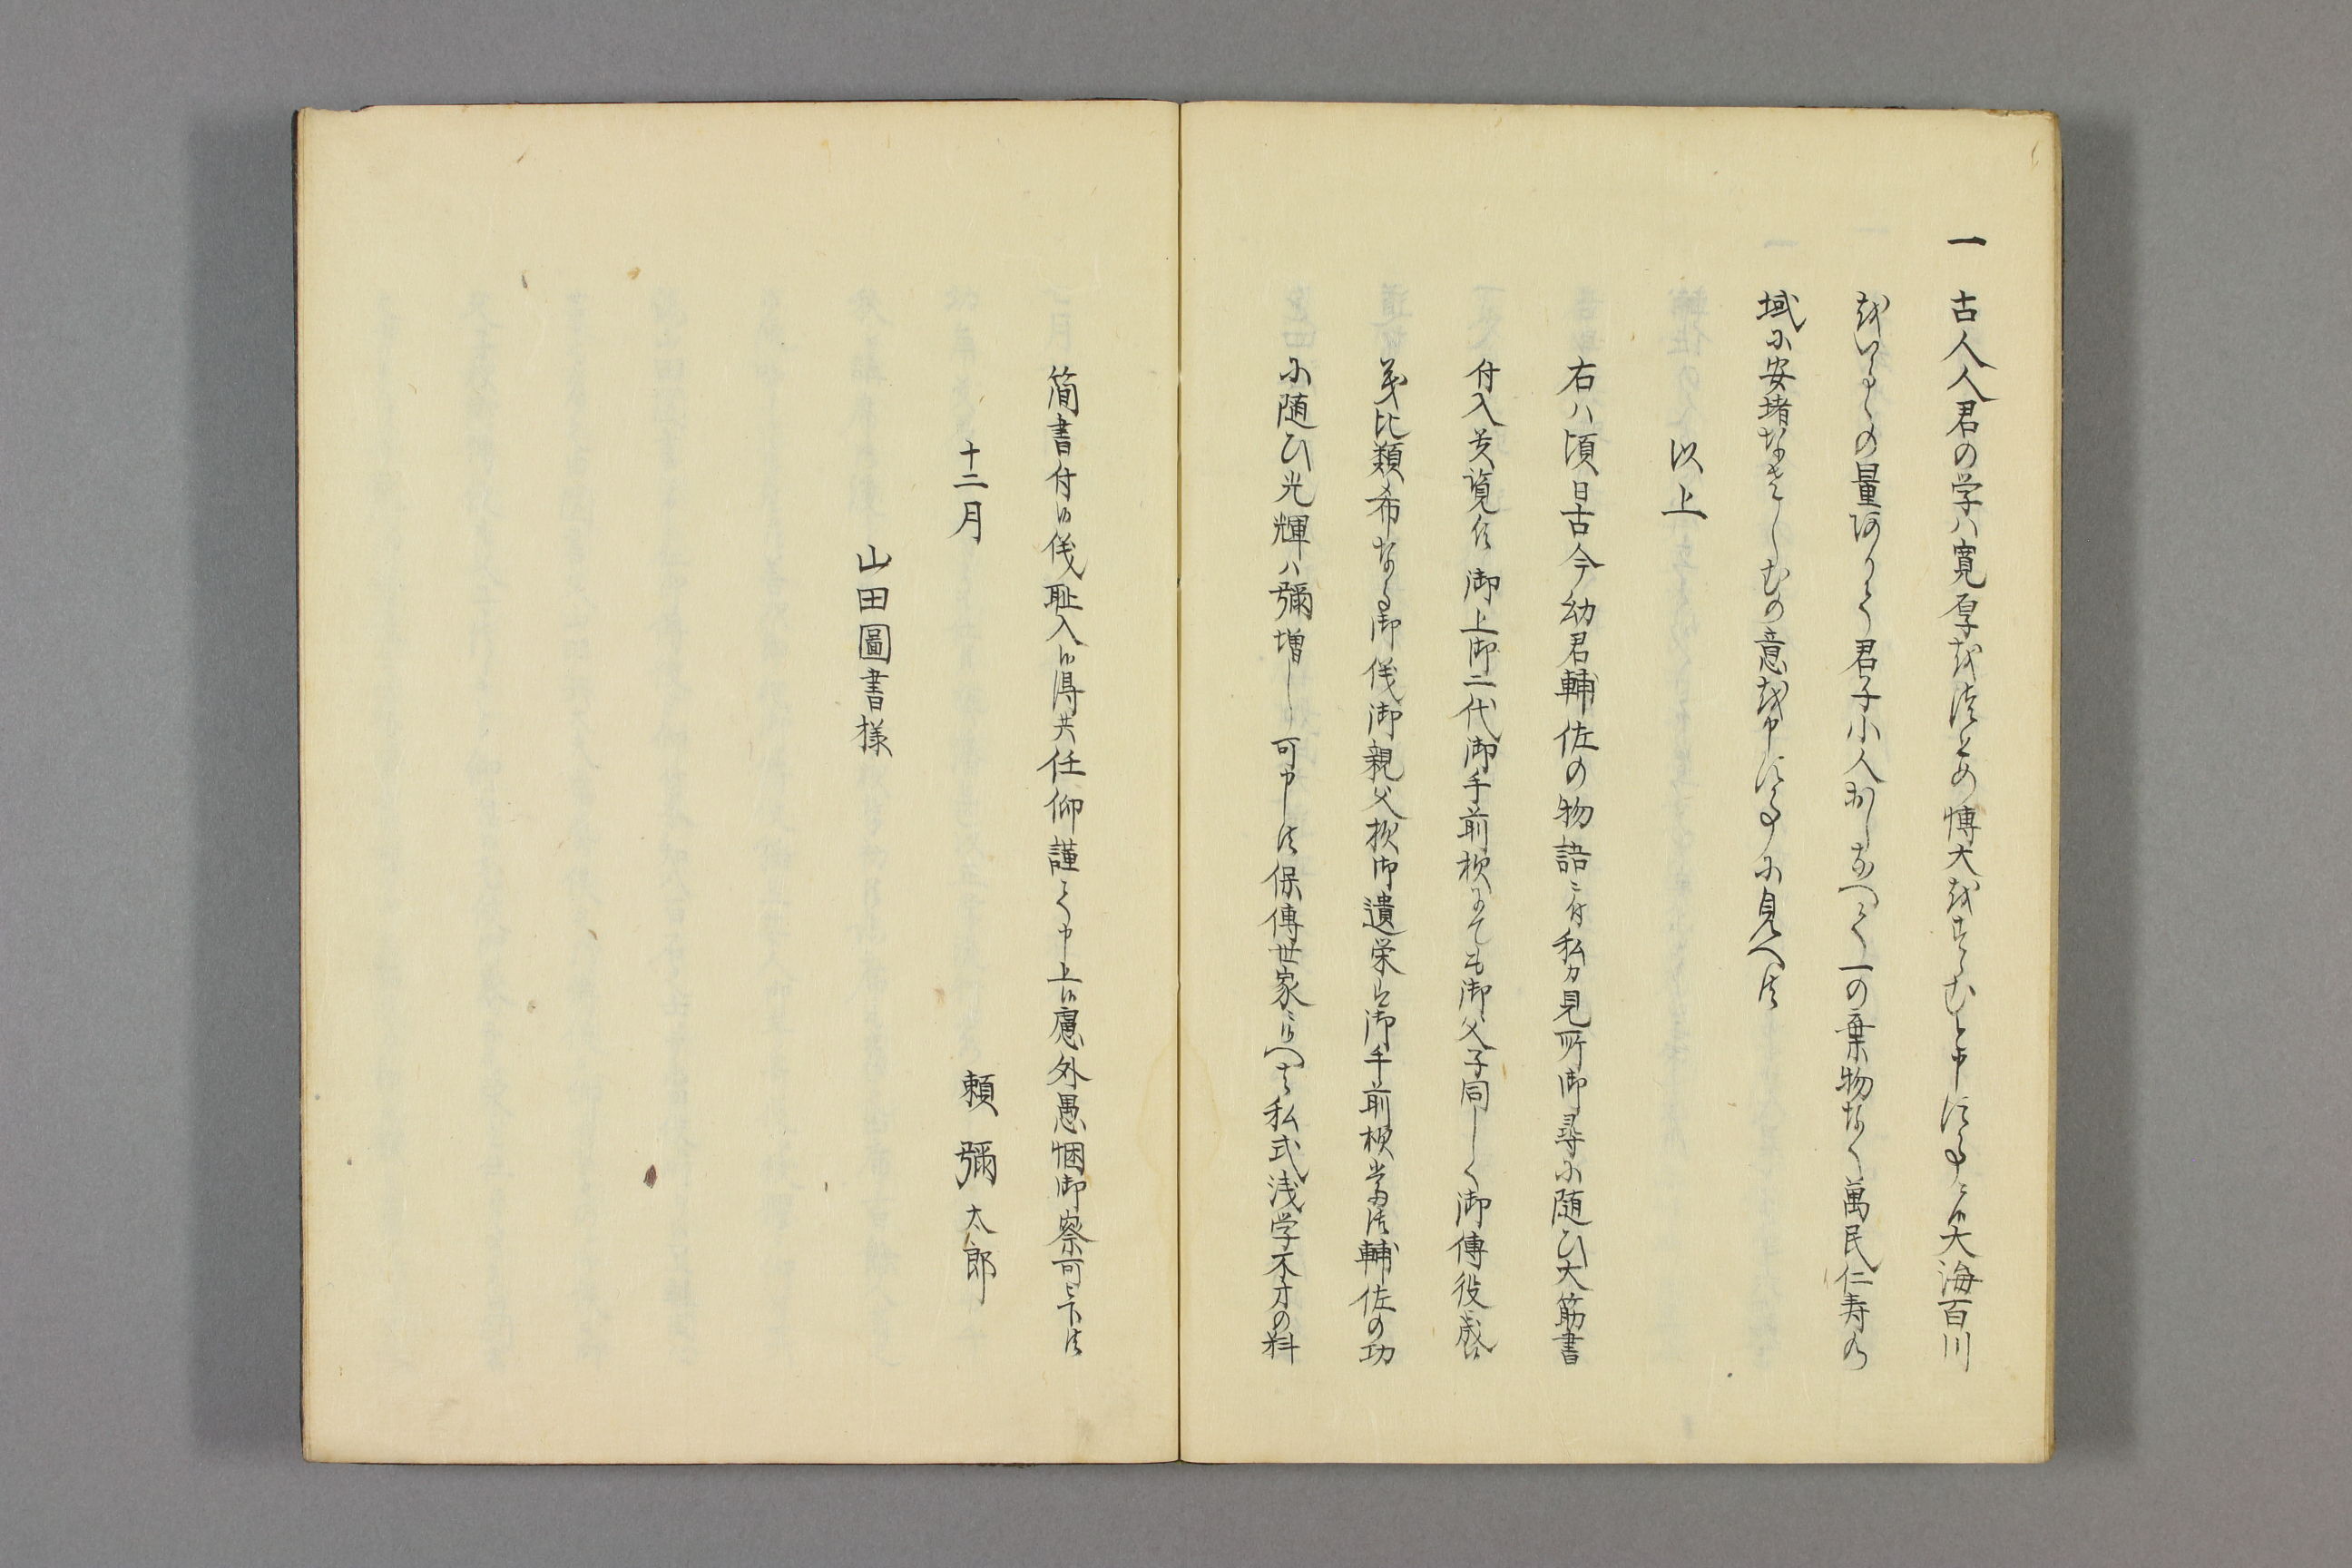 一 古人人君の学ハ寛厚をつとめ博大をこゝむと申候事ニ候大海百川
をいるゝの量ありて君子小人おしなへて一の棄物なく萬民仁寿の
域に安堵なさしむの意を申候事に見へ候
以上
右ハ頃日古今幼君輔佐の物語ニ付私カ見所御尋に随ひ大筋書
付入貴覧候 御上御二代御手前様にても御父子同しく御傅役
比類希なる御儀御親父様御遺栄と御手前様当時輔佐の功
に随ひ光輝ハ彌増し可申候保傅世家ニ候へは私式浅学不才の料
簡書付候儀耻入候得共任仰謹て申上候慮外愚悃御察可被下候
十二月 頼彌太郎
山田圖書様